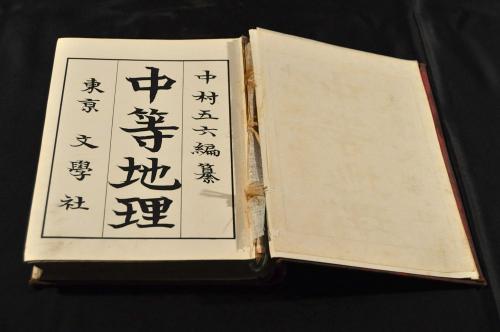 中村五六編纂
中等地理
東京 文學社